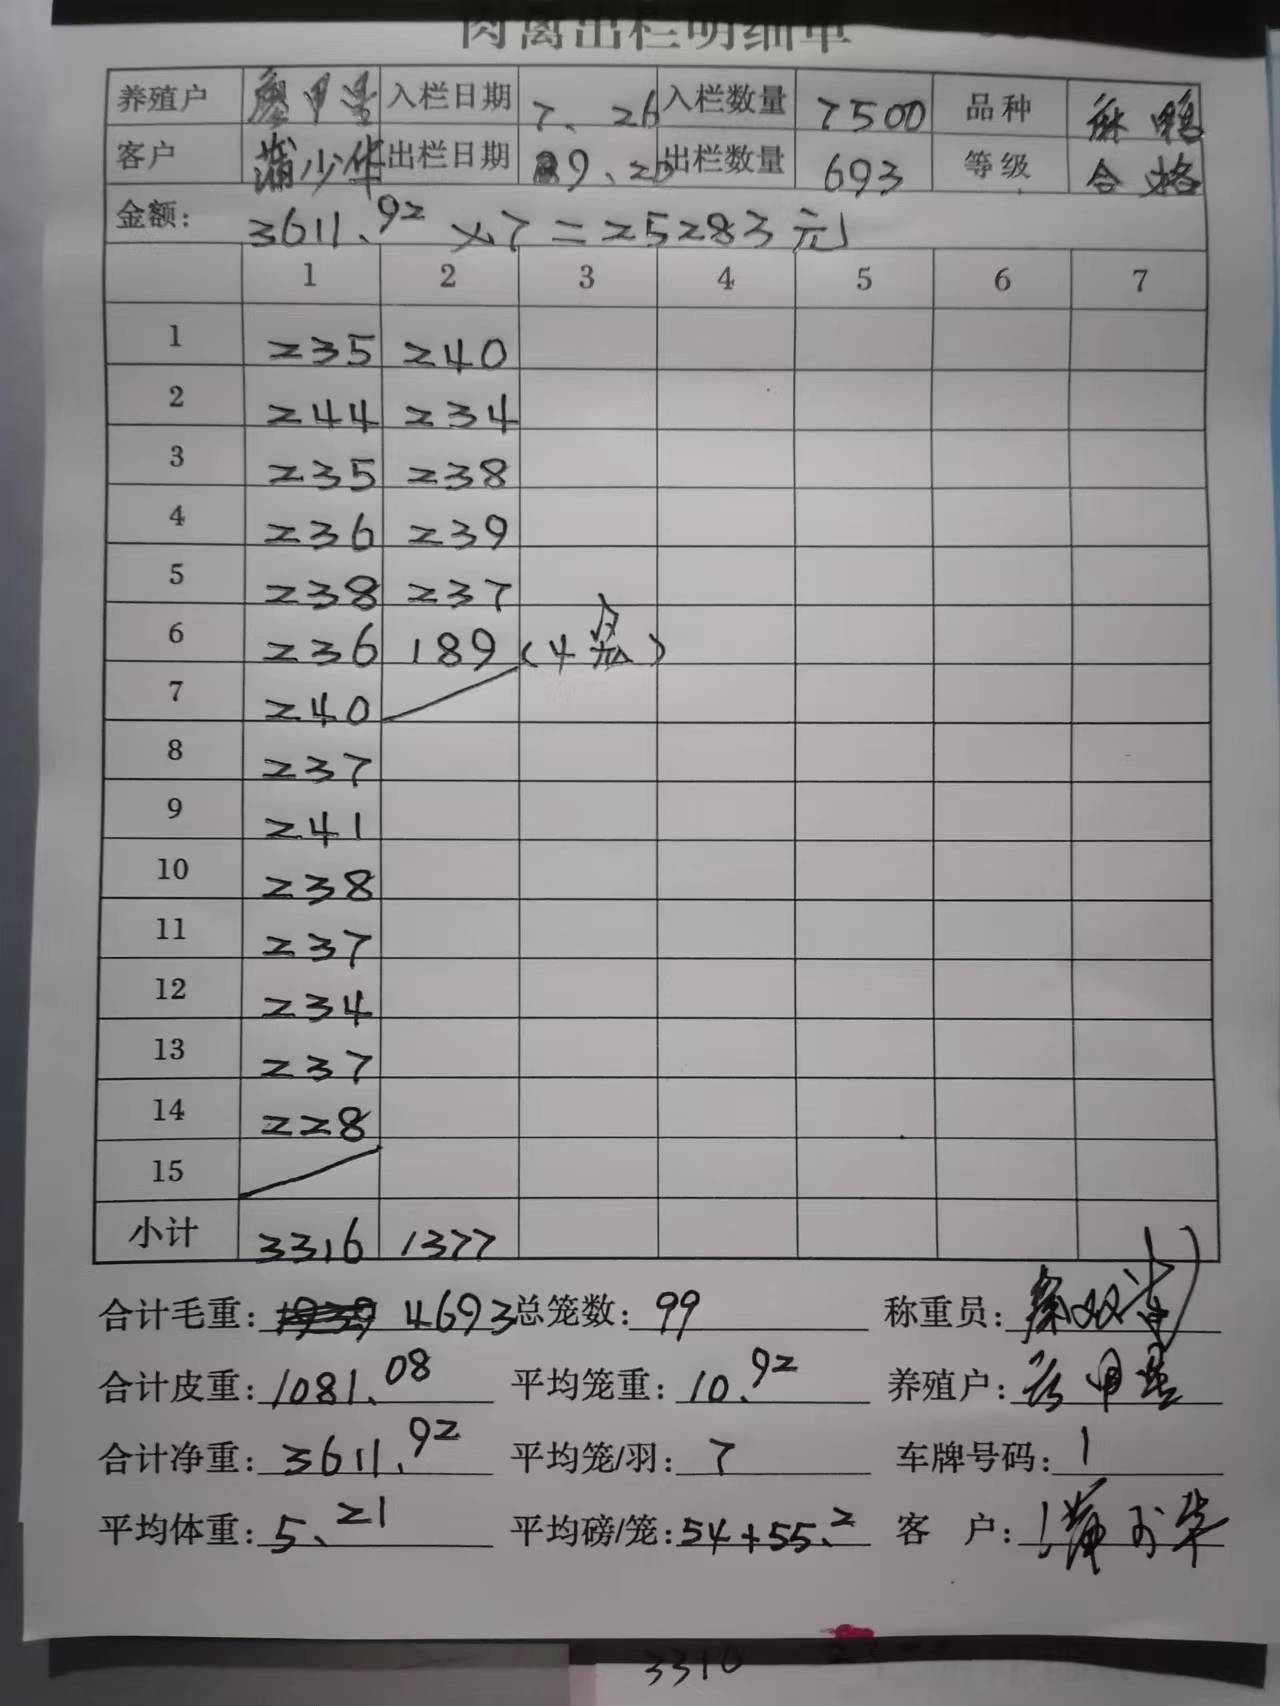 肉禽出栏明细单
养殖户 廖甲圣 入栏日期 7.26 入栏数量 7500 品种 麻鸭
客户 蒲少华 出栏日期 9.20 出栏数量 693 等级 合格
金额: 3611.92 x7=25283元
1 2 3 4 5 6 7
1 235 240
2 244 234
3 235 238
4 236 239
5 238 237
6 236 189(4笼)
7 240
8 237
9 241
10 238
11 237
12 234
13 237
14 228
15
小计 3316 1377
合计毛重: 4693 总笼数: 99 称重员:
合计皮重: 1081.08 平均笼重: 10.92 养殖户:
合计净重: 3611.92 平均笼/羽: 7 车牌号码: 1
平均体重: 5.21 平均磅/笼: 54+55.2 客 户: 蒲少华
3316